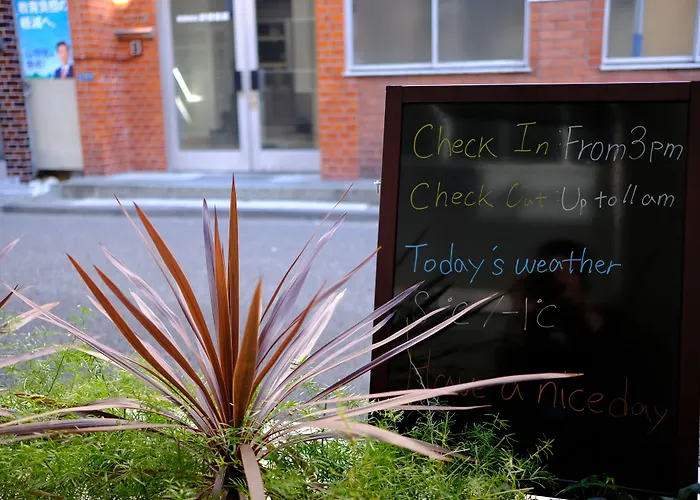 教育負担の
軽減へ。
Check In From 3pm
Check Out Up to 11am
Today's weather
8°c / -1°c
Have a nice day